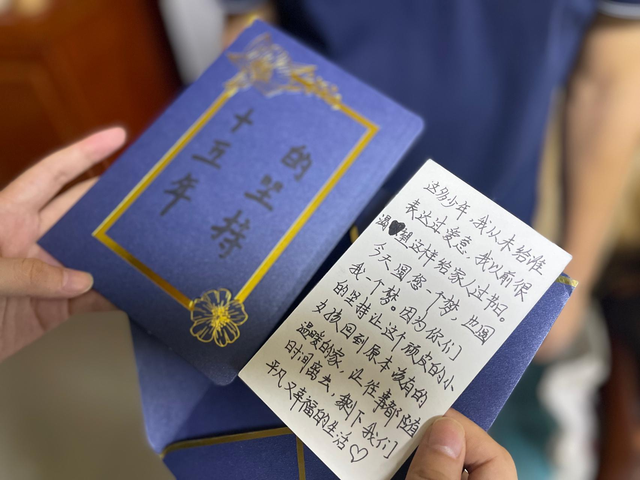 十五年
的坚持
这多少年，我从未给谁
表达过爱意。我以前很
渴♥想这样给家人过节日。
今天圆您一个梦，也圆
我一个梦。因为你们
的坚持让这个顽皮的小
女孩回到原本该有的
温暖的家，让往事都随
时间离去，剩下我们
平凡又幸福的生活♡